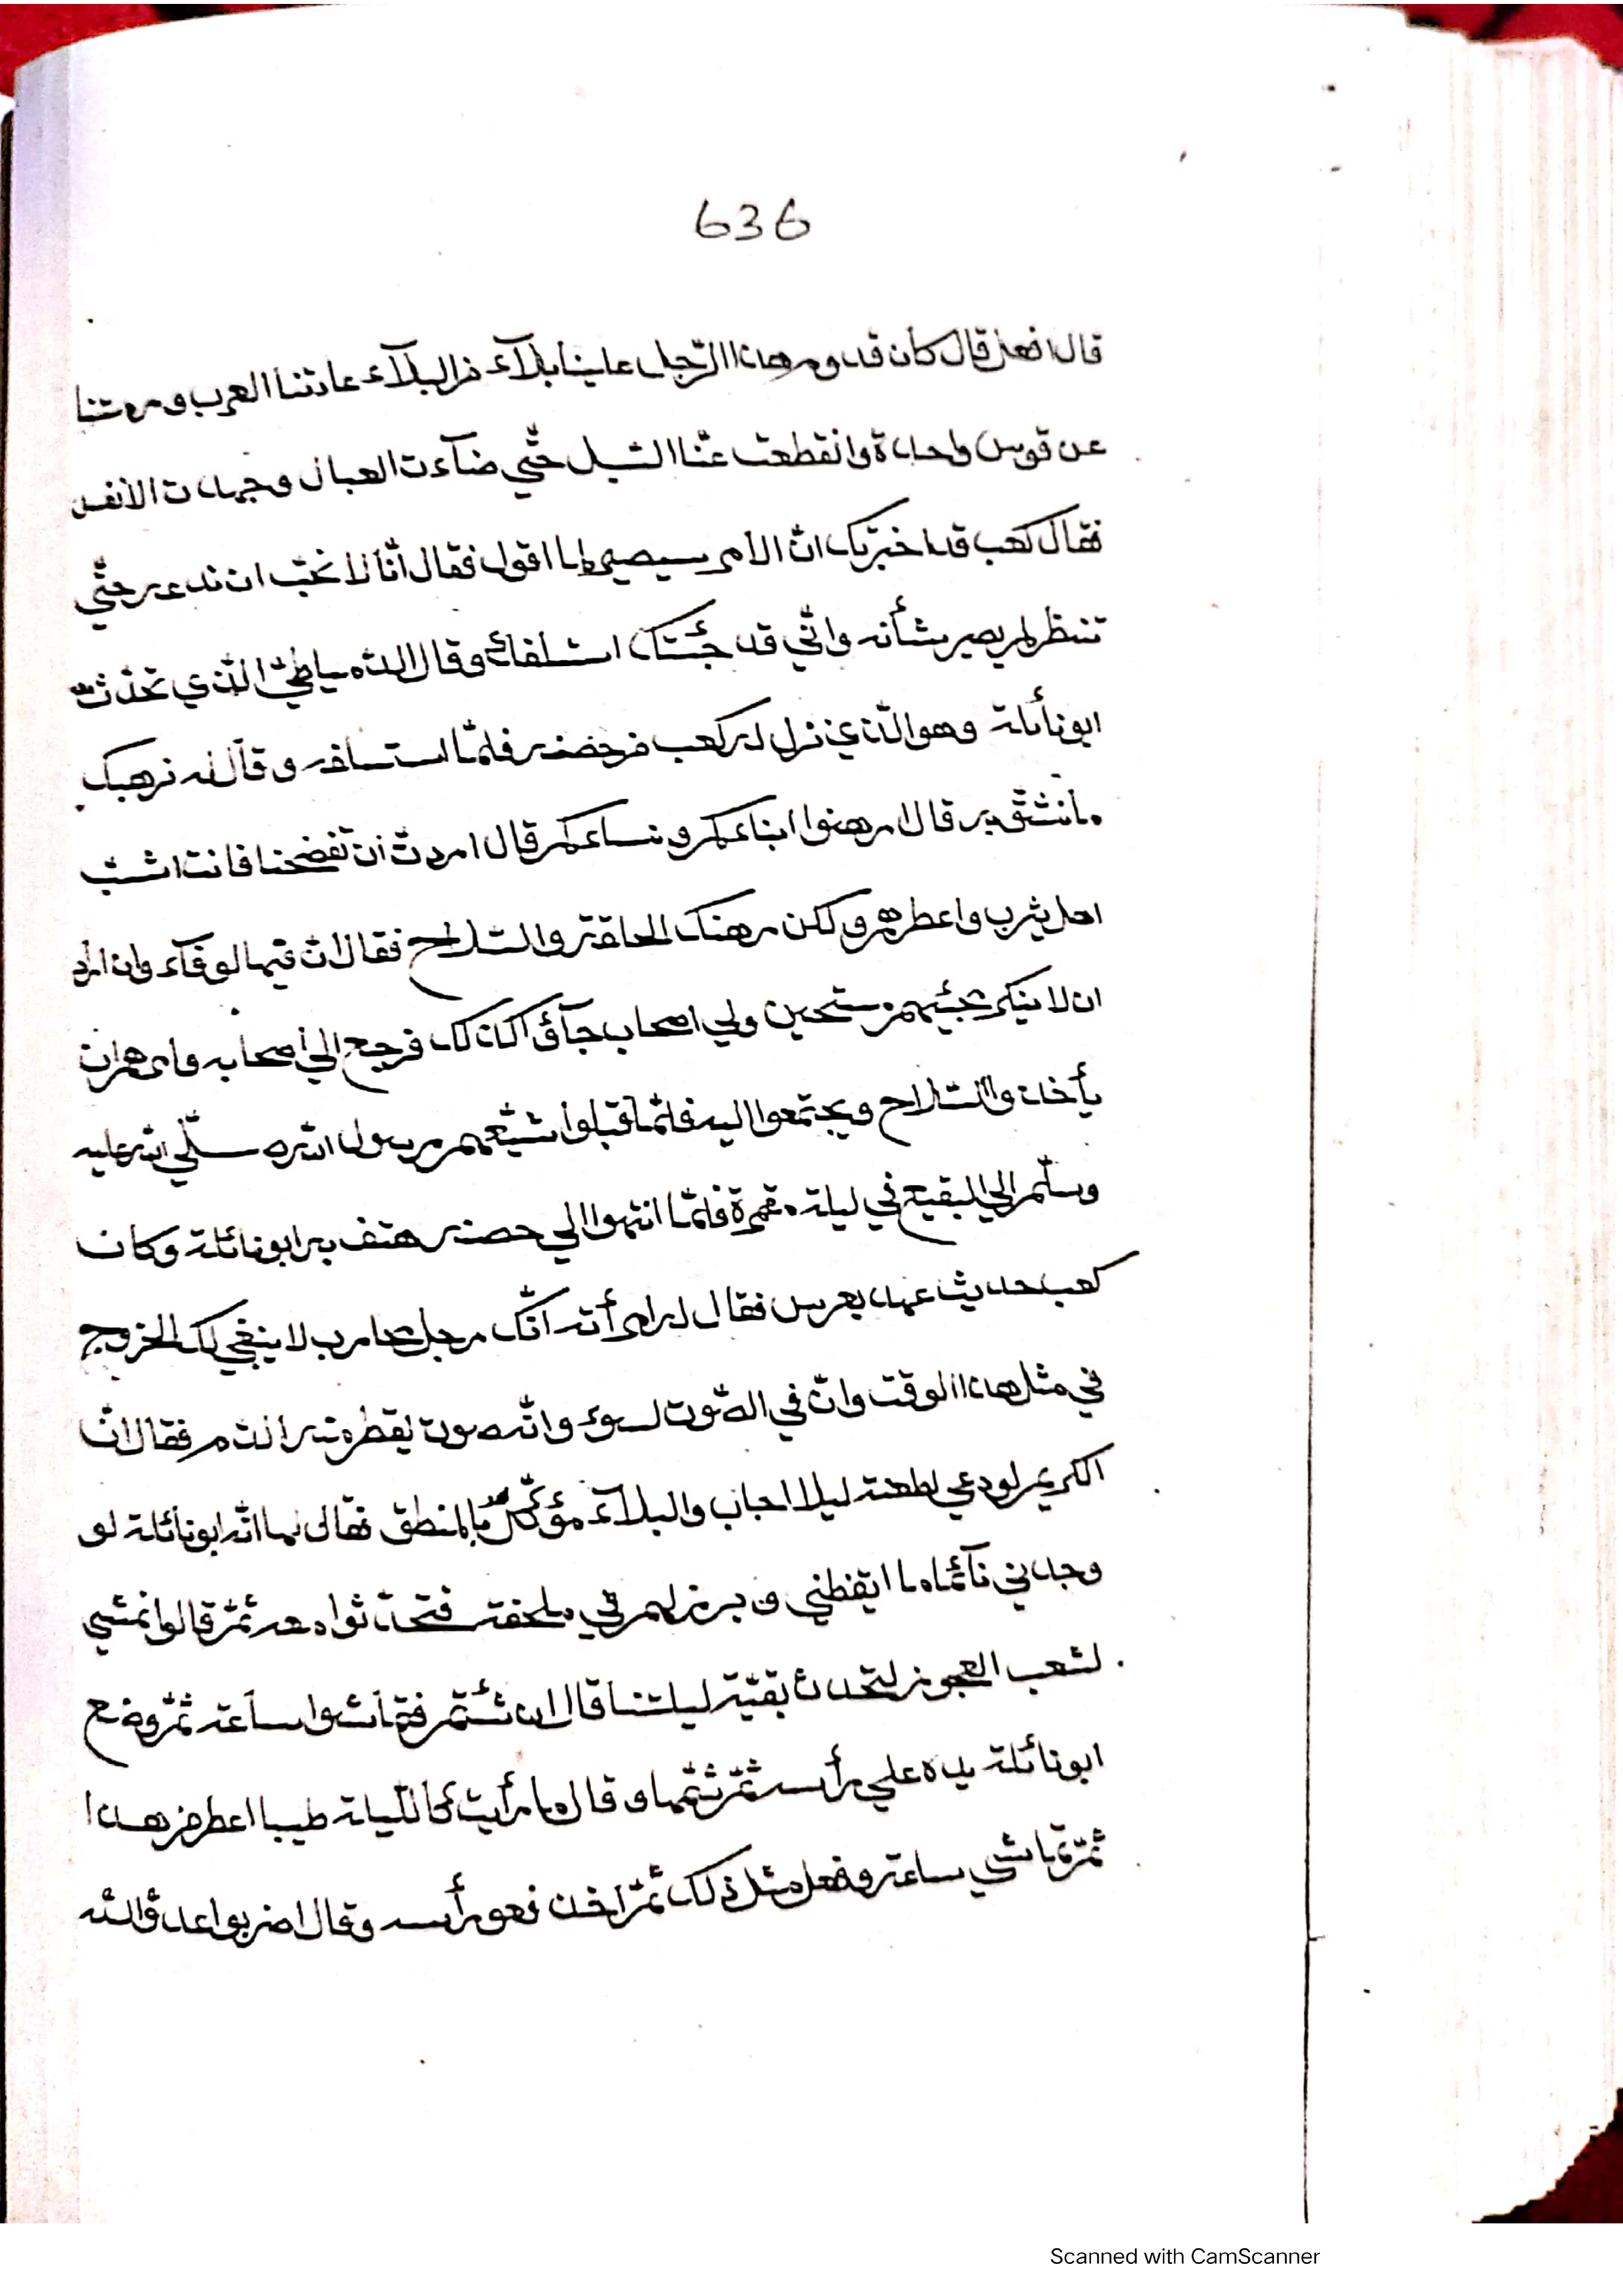 636
قال افعل قال كان قدوم هذا الرّجل علينا بلآء من البلآء عادتنا العرب ورمتنا
عن قوس واحدة وانقطعت عنّا السّبل حتّي ضآءت العيال وجهدت الانفس
فقال كعب قد اخبرتك انّ الامر سيصير لما اقول فقال انّا لا نحبّ ان ندعه حتّي
تنظر لم يصير شأنه وانّي قد جئتك استلفك وقال الذّي تحدّث
ابو نائلة وهو الّذي نزل له كعب من حضنه فلمّا استسلفه وقال له نرهبك
ما نثق به قال ارهنوا ابناءكم ونساءكم قال اردتّ ان تفضحنا فانت اشبّ
اهل يثرب واعطرهم ولكن نرهنك الحلقة والسّلاح فقال انّ فيها لوفآء وان اراد
ان لا ينكر مجئيهم مستحين ولي اصحاب جآؤا كذلك فرجع الي اصحابه وامرهم ان
يأخذوا السّلاح ويجتمعوا اليه فلمّا قبلوا شيّعهم رسول الله صلّي الله عليه
وسلّم الي البقيع في ليلة مقمرة فلمّا انتهوا الي حصنه هتف به ابو نائلة وكان
كعب حديث عهد بعرس فقال له امرأته انّك رجل محارب لا ينبغي لك الخروج
في مثل هذا الوقت وانّ في الصّوت لسوء وانّه صوت يقطر منه الدّم فقال انّ
الكريم لو دعي لطعنة ليلا اجاب والبلآء مؤكّل بالمنطق فقال لها انّه ابو نائلة لو
وجدني نآئما ما ايقظني وبرز لهم في ملحفة فتحدّثوا معه ثمّ قالوا نمشي
لشعب العجوز لنتحدث بقيّة ليلتنا قال ان شئتم فتماشوا ساعة ثمّ وضع
ابو نائلة يده علي رأسه ثمّ شمّها وقال ما رأيت كاللّيلة طيبا اعطر من هذا
ثمّ تماشي ساعة وفعل مثل ذلك ثمّ اخذ فعو رأسه وقال اضربوا عدوّ الله
Scanned with CamScanner